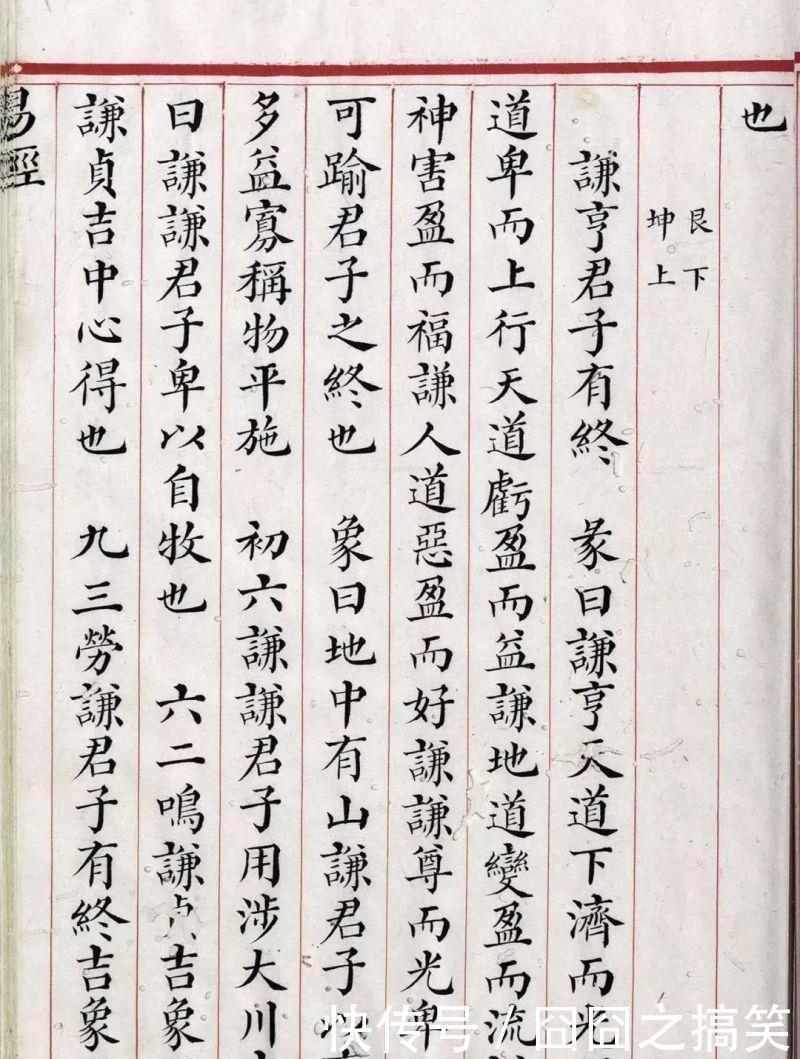 也
艮下
坤上
謙亨君子有終　彖曰謙亨天道下濟而光
道卑而上行天道虧盈而益謙地道變盈而流
神害盈而福謙人道惡盈而好謙謙尊而光卑
可踰君子之終也　象曰地中有山謙君子
多益寡稱物平施　初六謙謙君子用涉大川
曰謙謙君子卑以自牧也　六二鳴謙貞吉象
謙貞吉中心得也　九三勞謙君子有終吉象
易經
快传号/囧囧之搞笑